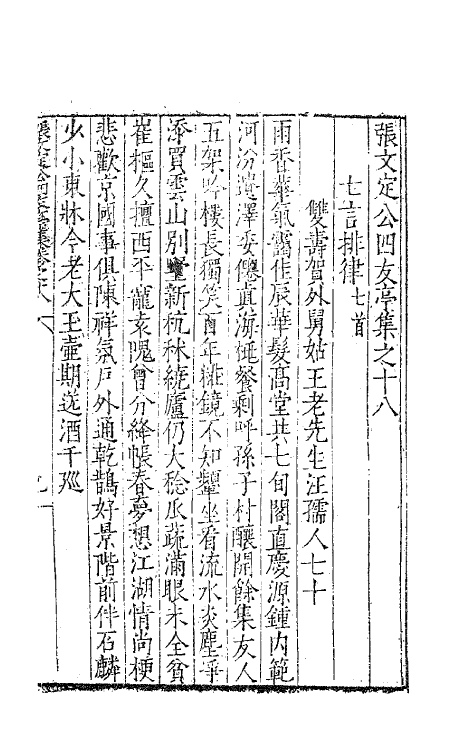 張文定公四友亭集之十八
七言排律七首
雙壽賀外舅姑王老先生汪孺人七十
雨香華氣靄佳辰華髮高堂共七旬閣直慶源鍾内範
河汾遺澤委僊真海𮮐餐剩呼孫子村釀開餘集友人
五架吟樓長獨笑百年粧鏡不知顰坐看流水炎塵爭
添買雲山別墅新杭秫繞廬仍大稔瓜蔬滿眼未全貧
崔樞久擅西平寵袁隗曾分絳帳春夢想江湖情尚梗
悲歡京國事俱陳祥氛戶外通乾鵲好景階前伴石麟
少小東牀今老大玉壺期送酒千廵